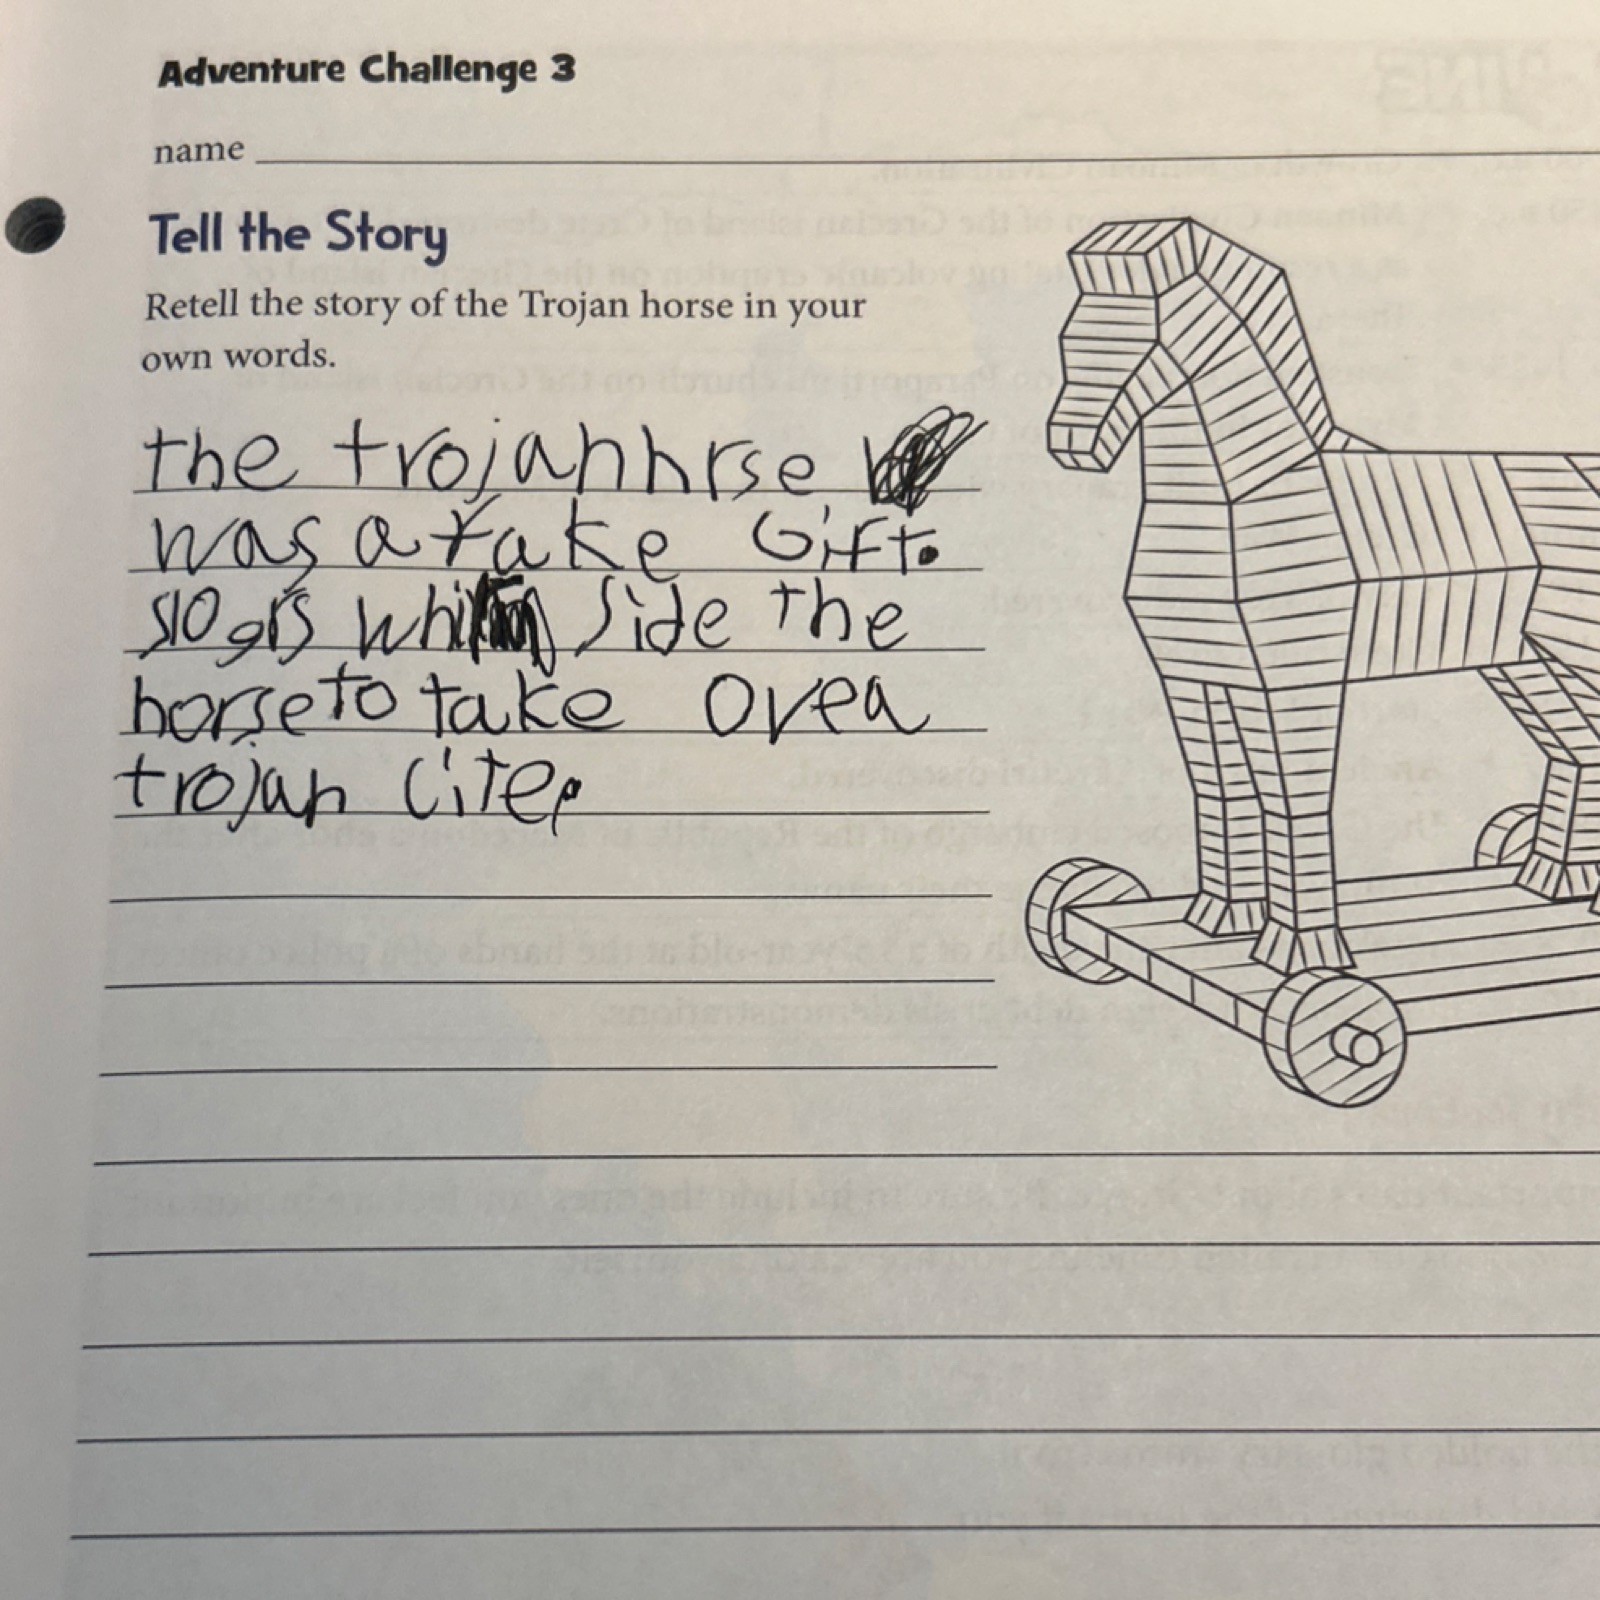 Adventure Challenge 3
name
Tell the Story
Retell the story of the Trojan horse in your
own words.
the trojan hrse
was a fake Gift.
slogrs whi side the
horse to take ovea
trojan Cite.